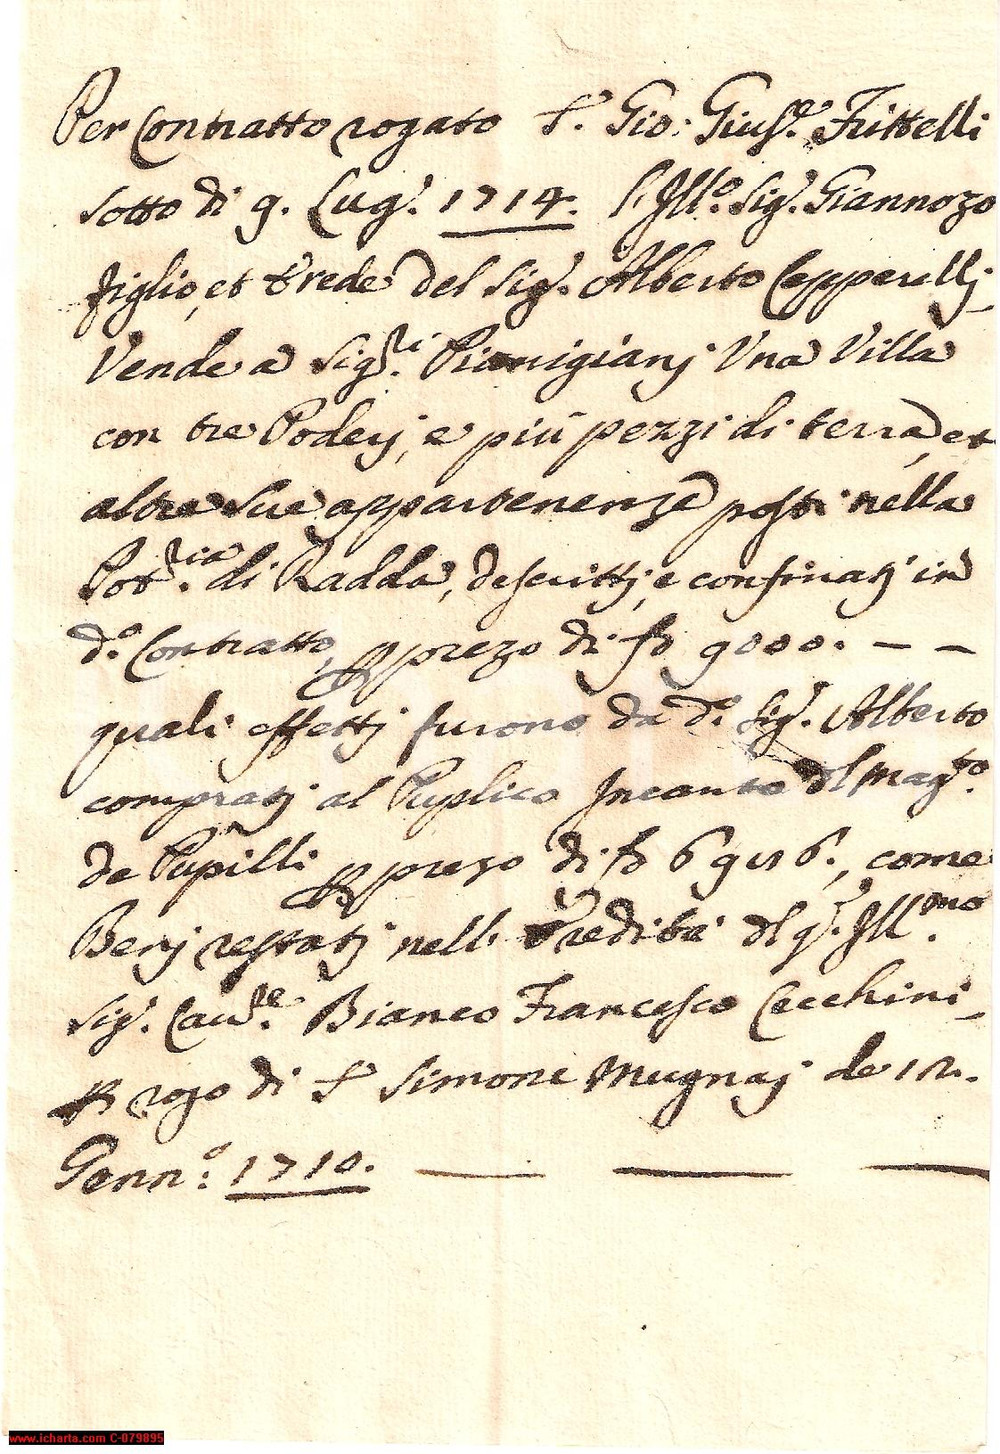 Per Contratto rogato S.r Gio: Gius.e Frittelli
sotto di 9. Lug.o 1714. l'Ill.o Sig.r Giannozo
figlio, et Erede del Sig.r Alberto Cepparellj
Vende a Sig.ri Pianigianj Una Villa
con tre Poderj, e più pezzi di terra, et
altre sue appartenenze posti nella
Pot.ria di Radda, descrittj, e confinatj in
d.o Contratto, per prezo di sd 9000. — —
quali effettj furono da d.o Sig.r Alberto
compratj al Puplico Incanto del Mag.to
de Pupilli per prezo di sd 6916., come
Benj restatj nell' Eredità del q.m Ill.mo
Sig.r Cav.re Bianco Francesco Cecchini
per rogo di S.r Simone Mugnaj de 12.
Genn.o 1710. — — —
www.icharta.com C-079895